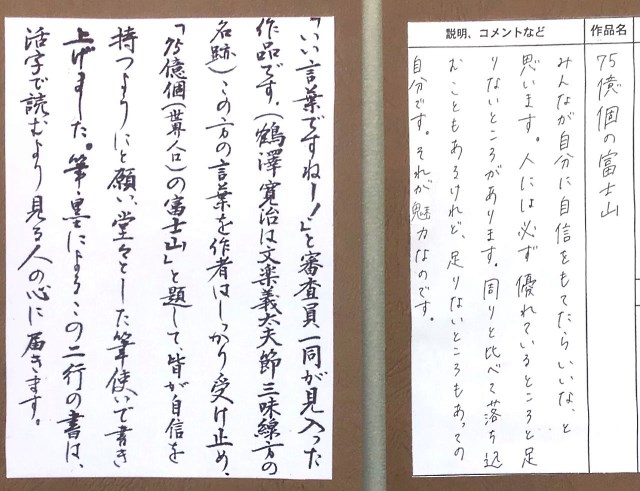 作品名
75億個の富士山
説明、コメントなど
みんなが自分に自信をもてたらいいな、と
思います。人には必ず優れているところと足
りないところがあります。周りと比べて落ち込
むこともあるけれど、足りないところもあっての
自分です。それが魅力なのです。
「いい言葉ですねー!」と審査員一同が見入った
作品です。(鶴澤寛治は文楽義太夫節三味線方の
名跡)この方の言葉を作者はしっかり受け止め、
「75億個(世界人口)の富士山」と題して、皆が自信を
持つようにと願い、堂々とした筆使いで書き
上げました。筆・墨によるこの二行の書は、
活字で読むより見る人の心に届きます。